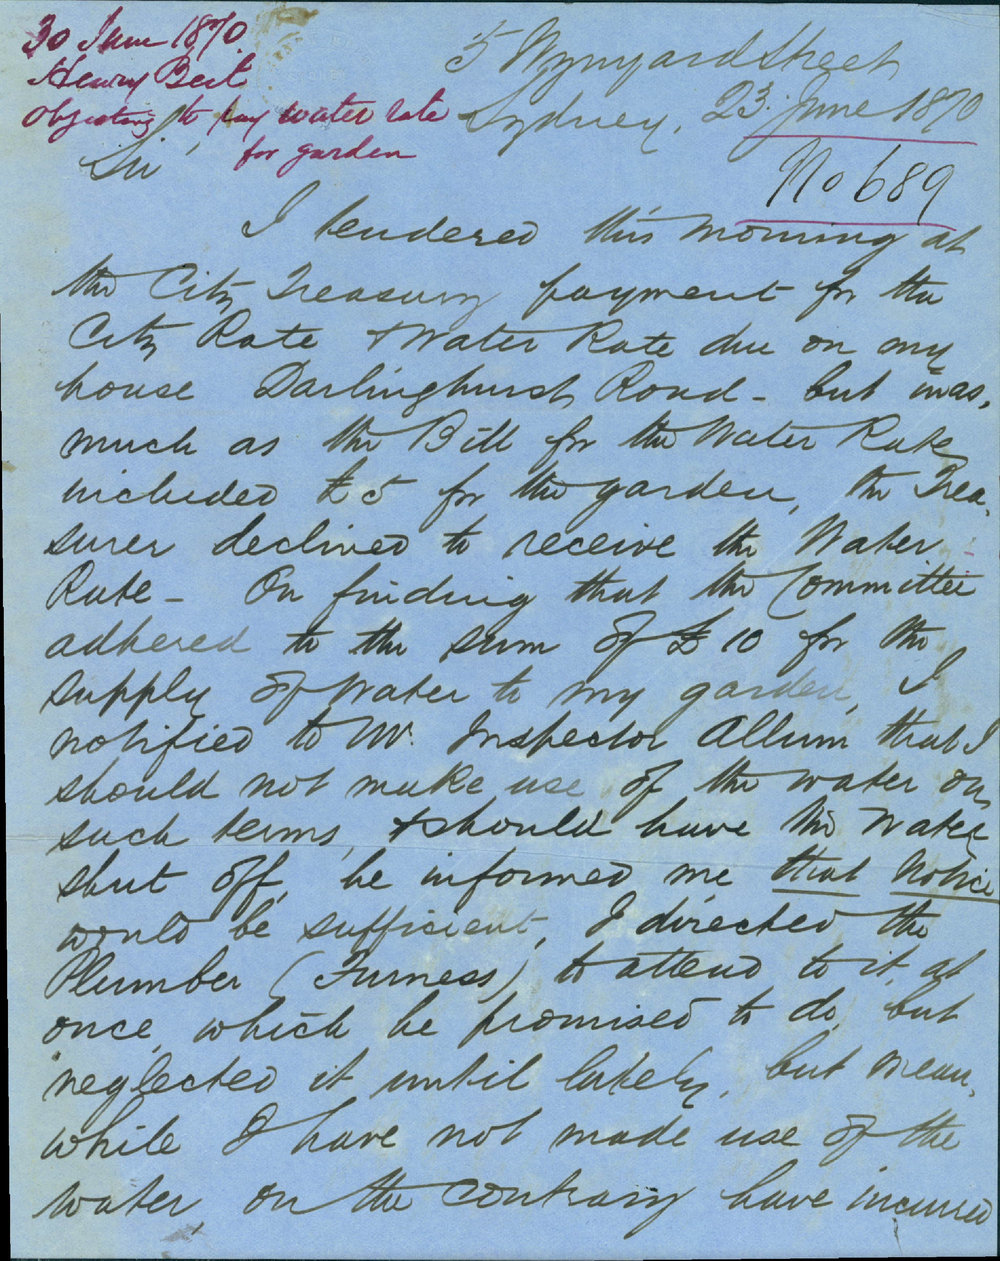 30 June 1870.
Henry Beit
objecting to pay water rate
for garden
5 Wynyard Street
Sydney, 23 June 1870
No 689
Sir,
I tendered this morning at
the City Treasury payment for the
City Rate & Water Rate due on my
house Darlinghurst Road - but inas-
much as the Bill for the Water Rate
included £5 for the garden, the Trea-
surer declined to receive the Water
Rate - On finding that the Committee
adhered to the sum of £10 for the
supply of Water to my garden, I
notified to Mr. Inspector Allum that I
should not make use of the water on
such terms, & should have the Water
shut off, he informed me that Notice
would be sufficient, I directed the
Plumber (Furness) to attend to it at
once, which he promised to do, but
neglected it until lately, but mean-
while I have not made use of the
water, on the contrary have incurred